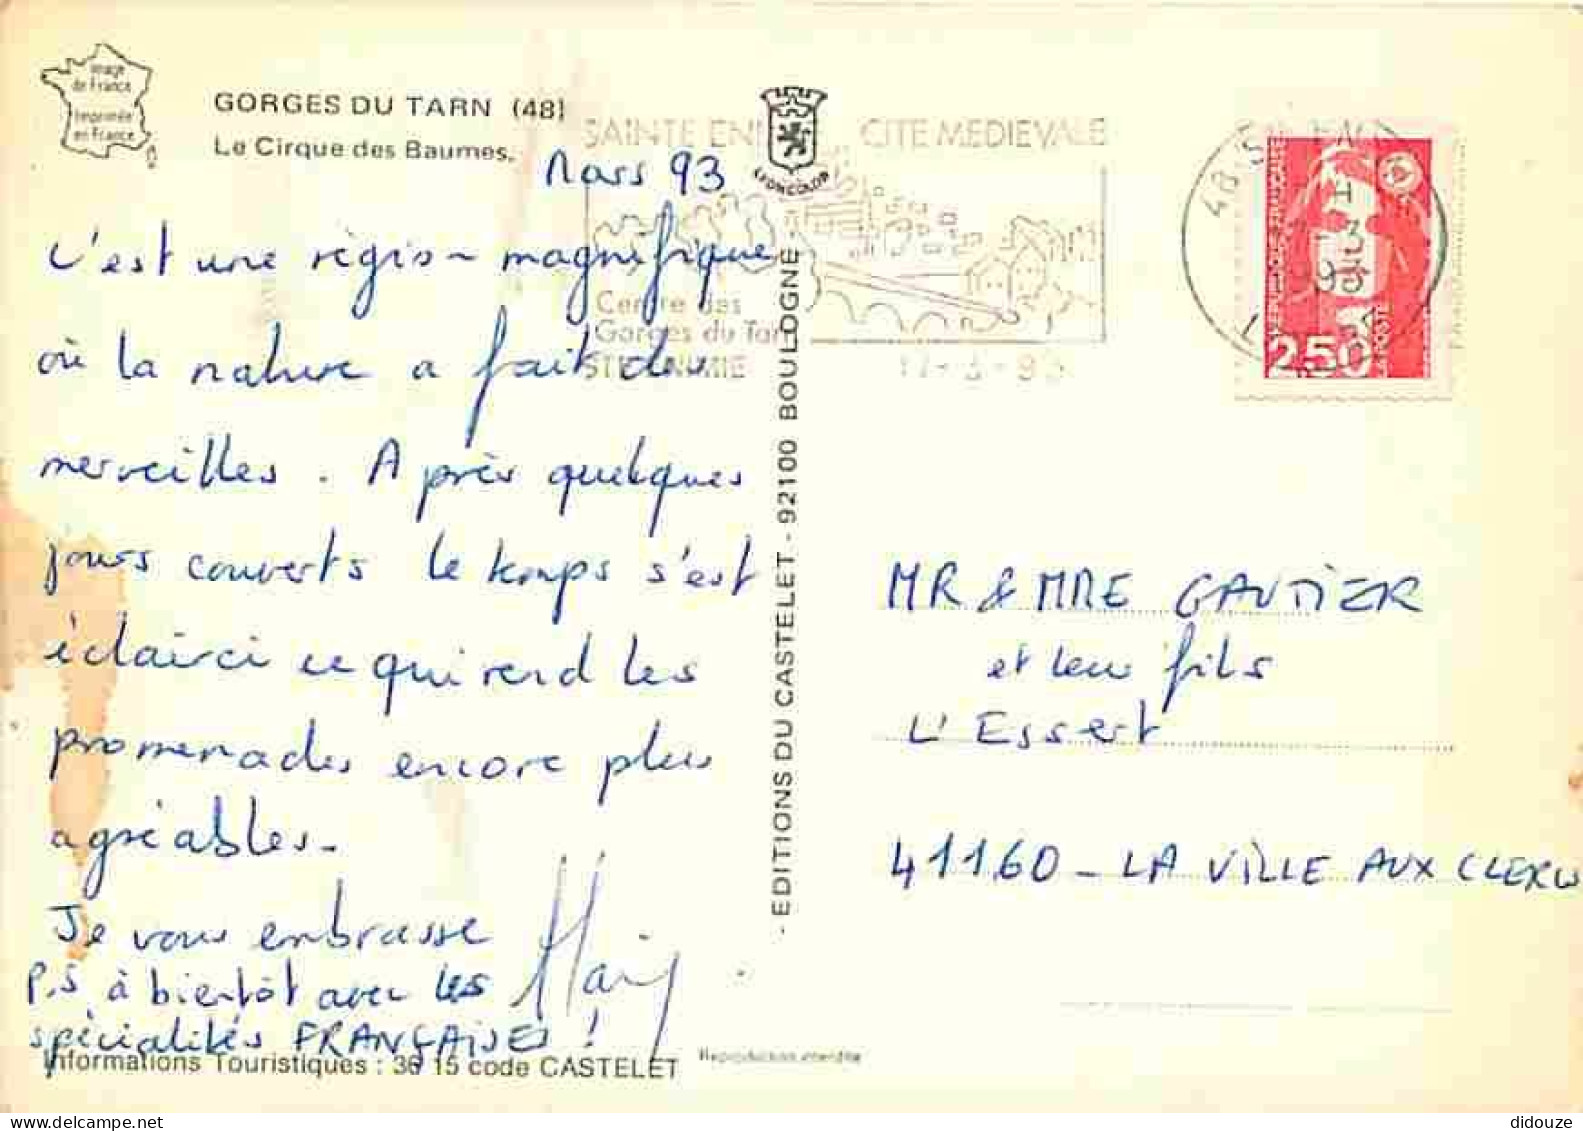 Image
de France
Imprimée
en France
GORGES DU TARN (48)
Le Cirque des Baumes.
LYONCOLOR
SAINTE ENIMIE CITE MEDIEVALE
Centre des
Gorges du Tarn
STE ENIMIE 17-3-93
RÉPUBLIQUE FRANÇAISE
2,50
LA POSTE
Mars 93
C'est une région magnifique
où la nature a fait des
merveilles. Après quelques
jours couverts le temps s'est
éclairci ce qui rend les
promenades encore plus
agréables.
Je vous embrasse
P.S à bientôt avec les
spécialités FRANÇAISES !
Informations Touristiques : 36 15 code CASTELET
Reproduction interdite
- EDITIONS DU CASTELET - 92100 BOULOGNE -
MR & MME GAUTIER
et leu fils
L'Essert
41160 - LA VILLE AUX CLERCS
didouze